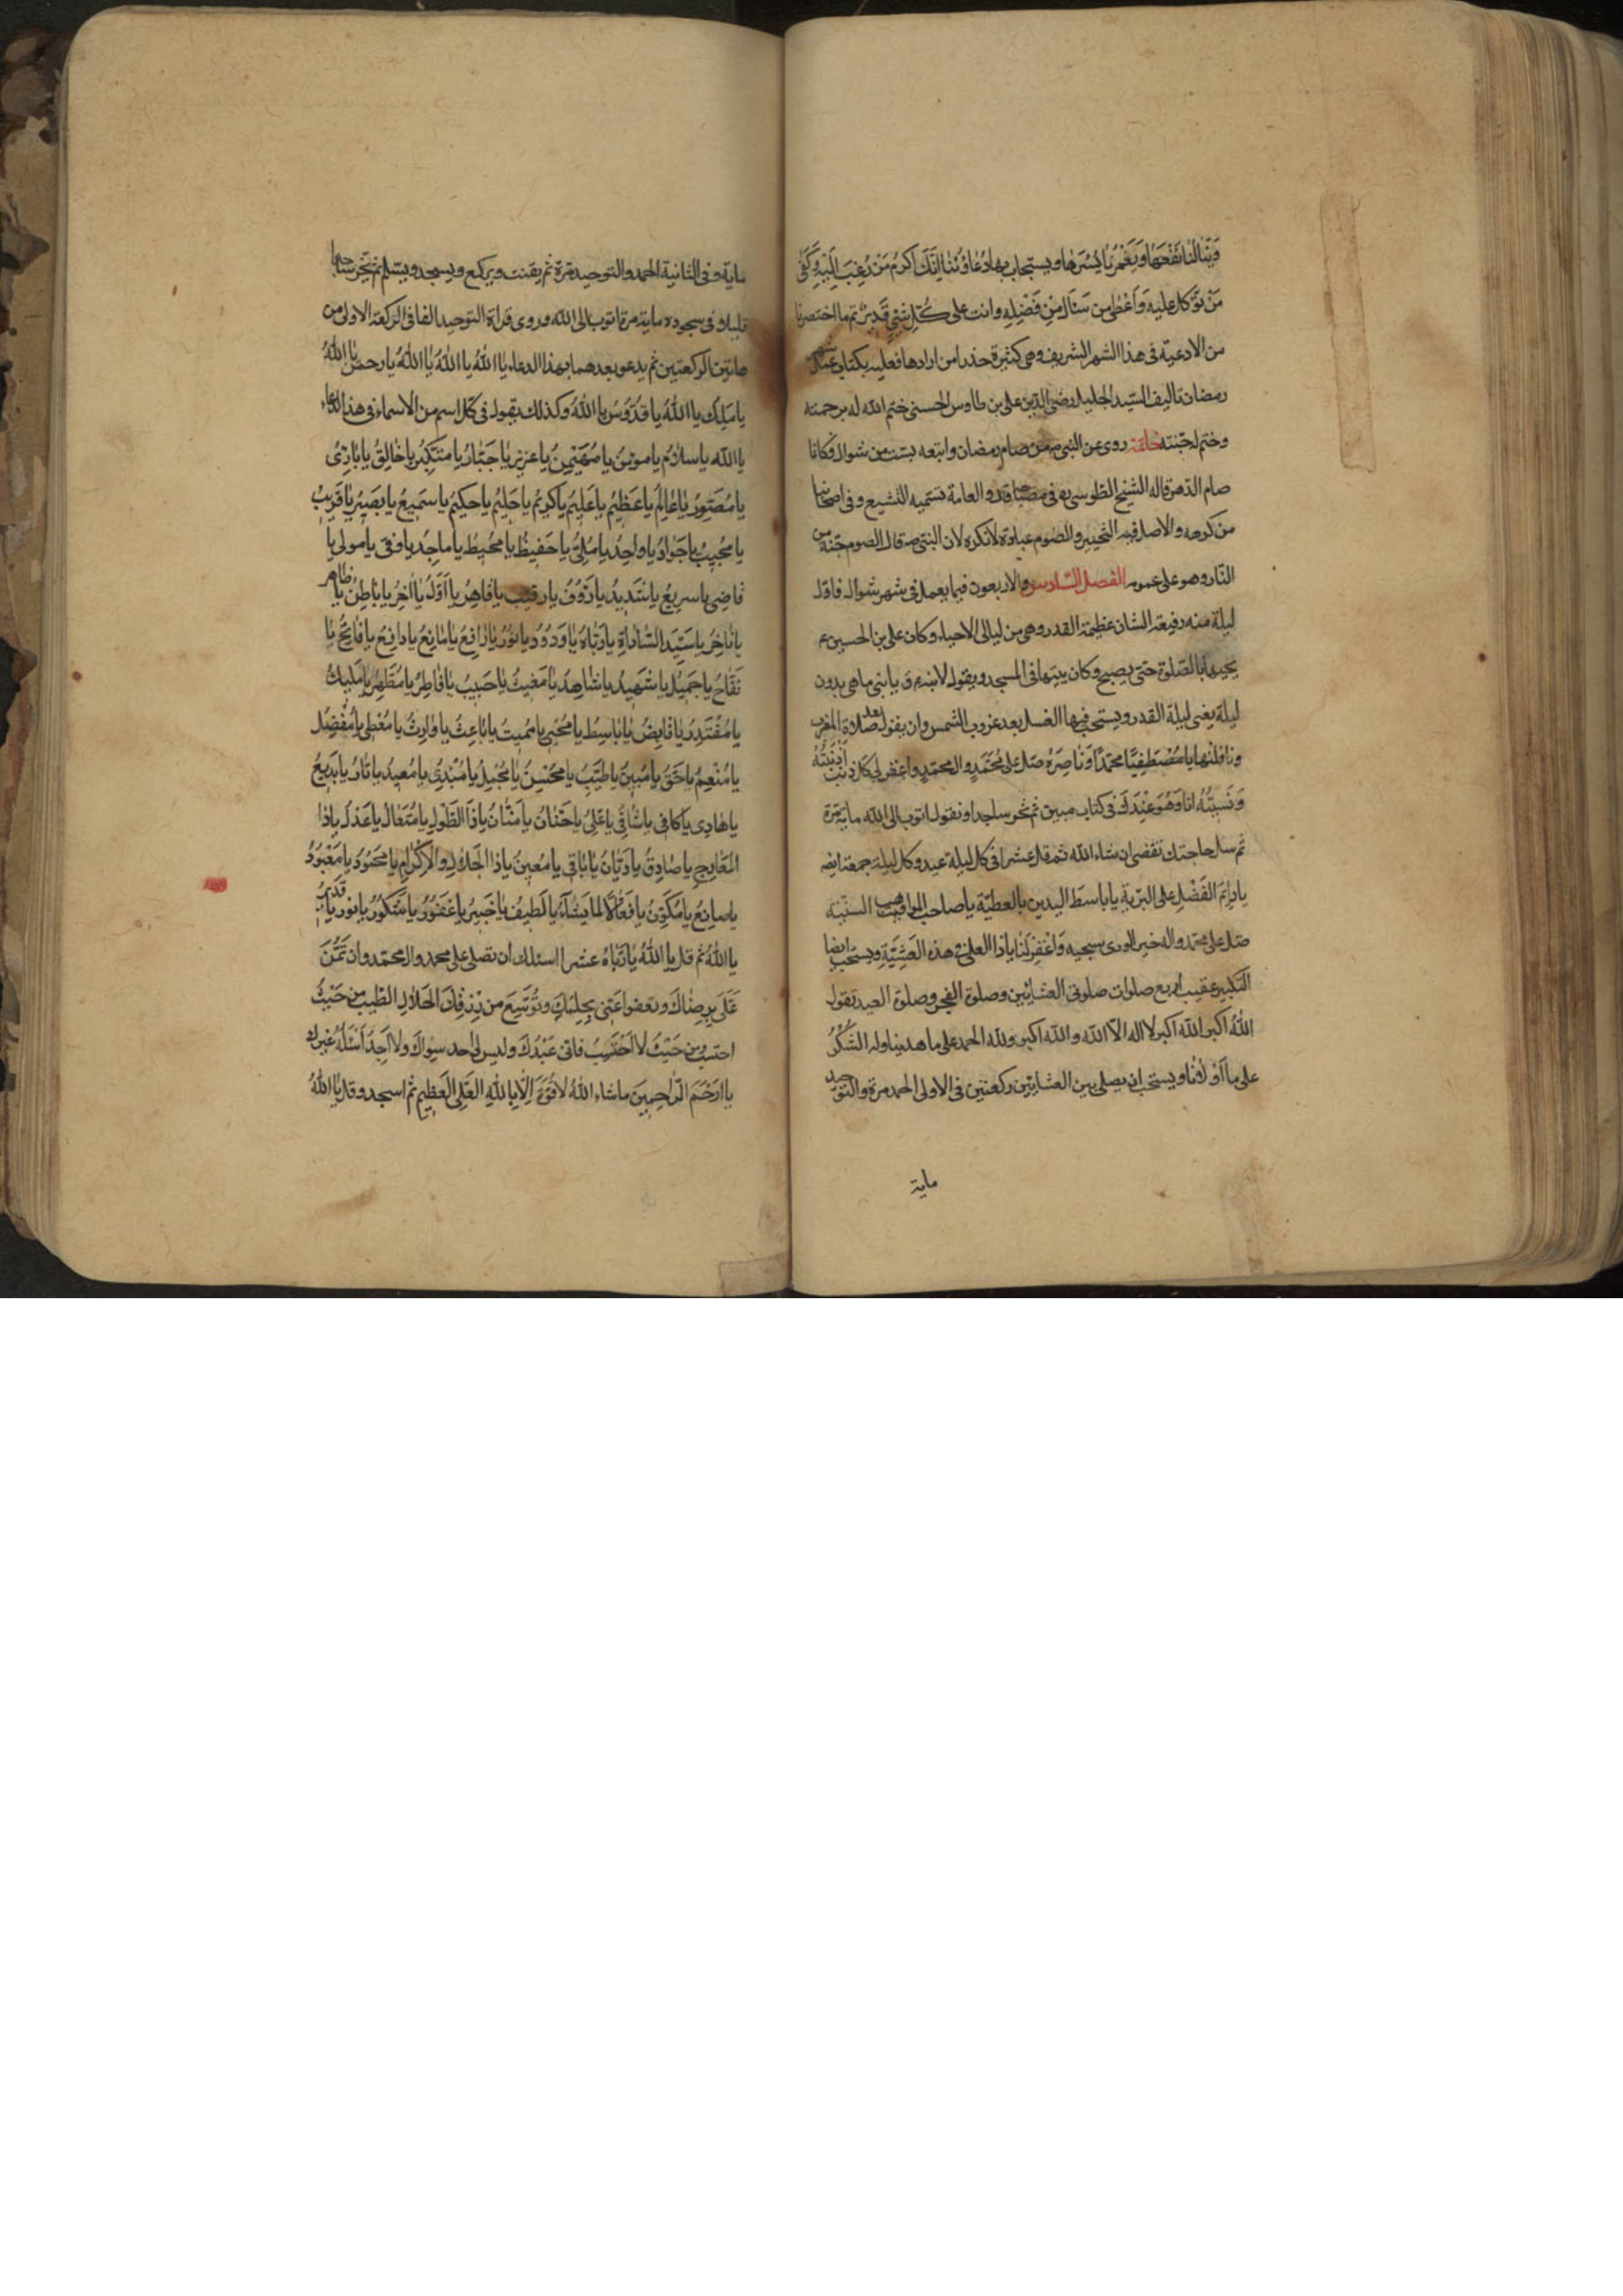 وينالنا نفعها ويغمرنا يسرها ويستجاب بها دعاؤنا انك اكرم من رغب اليه وكفى
من توكل عليه واعطى من سئال من فضله وانت على كل شئ قدير تم ما اختصرنا
من الادعية فى هذا الشهر الشريف وهى كثيرة جدا من ارادها فعليه بكتاب عمل شهر
رمضان تاليف السيد الجليل رضى الدين على بن طاوس الحسنى ختم الله له برحمته
وختم لجنته خاتمة روى عن النبى ص من صام رمضان واتبعه بست من شوال فكانما
صام الدهر قاله الشيخ الطوسى ره فى مصباحه والعامة تسميه التشييع وفى اصحابنا
من كرهه والاصل فيه التخيير والصوم عبادة لا تكره لان النبى ص قال الصوم جنة من
النار وهو على عمومه الفصل السادس والاربعون فيما يعمل فى شهر شوال فاول
ليلة منه رفيعة الشان عظيمة القدر وهى من ليالى الاحياء وكان على بن الحسين ع
يحييها بالصلوة حتى يصبح وكان يبيتها فى المسجد ويقول لابنه يا بنى ما هى بدون
ليلة يعنى ليلة القدر ويستحب فيها الغسل بعد غروب الشمس وان يقول بعد صلاة المغرب
ونافلتها يا مصطفيا محمدا وناصره صل على محمد وال محمد واغفر لى كل ذنب اذنبته
ونسيته انا وهو عندك فى كتاب مبين ثم تخر ساجدا وتقول اتوب الى الله ماية مرة
ثم سل حاجتك تقضى ان شاء الله ثم قل عشرا فى كل ليلة عيد وكل ليلة جمعة ايضه
يا دائم الفضل على البرية يا باسط اليدين بالعطية يا صاحب المواهب السنية
صل على محمد واله خير الورى سجيه واغفر لنا يا ذا العلى فى هذه العشية ويستحب ايضا
التكبير عقيب اربع صلوات صلوتى العشائين وصلوة الفجر وصلوة العيد تقول
الله اكبر الله اكبر لا اله الا الله والله اكبر ولله الحمد على ما هدينا وله الشكر
على ما اولانا ويستحب ان يصلى بين العشائين ركعتين فى الاولى الحمد مرة والتوحيد
ماية
ماية وفى الثانية الحمد والتوحيد مرة ثم يقنت ويركع ويسجد ويسلم ثم يخر ساجدا
قايلا فى سجوده ماية مرة اتوب الى الله وروى قراة التوحيد الفا فى الركعة الاولى من
هاتين الركعتين ثم يدعو بعدهما بهذا الدعاء يا الله يا الله يا الله يا رحمن يا الله
يا ملك يا الله يا قدوس يا الله وكذلك يقول فى كل اسم من الاسماء فى هذا الدعاء
يا الله يا سلام يا مومن يا مهيمن يا عزيز يا جبار يا متكبر يا خالق يا بارئ
يا مصور يا عالم يا عظيم يا عليم يا كريم يا حليم يا حكيم يا سميع يا بصير يا قريب
يا مجيب يا جواد يا واحد يا ملى يا حفيظ يا محيط يا ماجد يا وفى يا مولى يا
قاضى يا سريع يا شديد يا رؤف يا رقيب يا قاهر يا اول يا اخر يا باطن يا ظاهر
يا فاخر يا سيد السادات يا رباه يا ودود يا نور يا رافع يا مانع يا دافع يا فاتح يا
نفاح يا جميل يا شهيد يا شاهد يا مغيث يا حبيب يا فاطر يا مطهر يا مليك
يا مقتدر يا قابض يا باسط يا محيى يا مميت يا باعث يا وارث يا معطى يا مفضل
يا منعم يا حق يا مبين يا طيب يا محسن يا مجمل يا مبدئ يا معيد يا بار يا بديع
يا هادى يا كافى يا شافى يا على يا حنان يا منان يا ذا الطول يا متعال يا عدل يا ذا
المعارج يا صادق يا ديان يا باقى يا معين يا ذا الجلال والاكرام يا محمود يا معبود
يا صانع يا مكون يا فعالا لما يشاء يا لطيف يا خبير يا غفور يا شكور يا نور يا قديم
يا الله ثم قل يا الله يا رباه عشرا اسئلك ان تصلى على محمد وال محمد وان تمن
على برضاك وتعفو عنى بحلمك وتوسع من رزقك الحلال الطيب من حيث
احتسب ومن حيث لا احتسب فانى عبدك وليس لى احد سواك ولا اجد اسئله غيرك
يا ارحم الراحمين ما شاء الله لا قوة الا بالله العلى العظيم ثم اسجد وقل يا الله